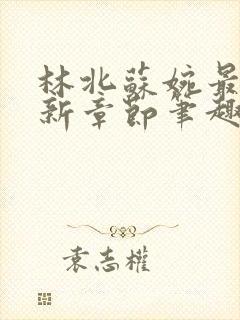 林北蘇婉最
新章節筆趣
袁志權